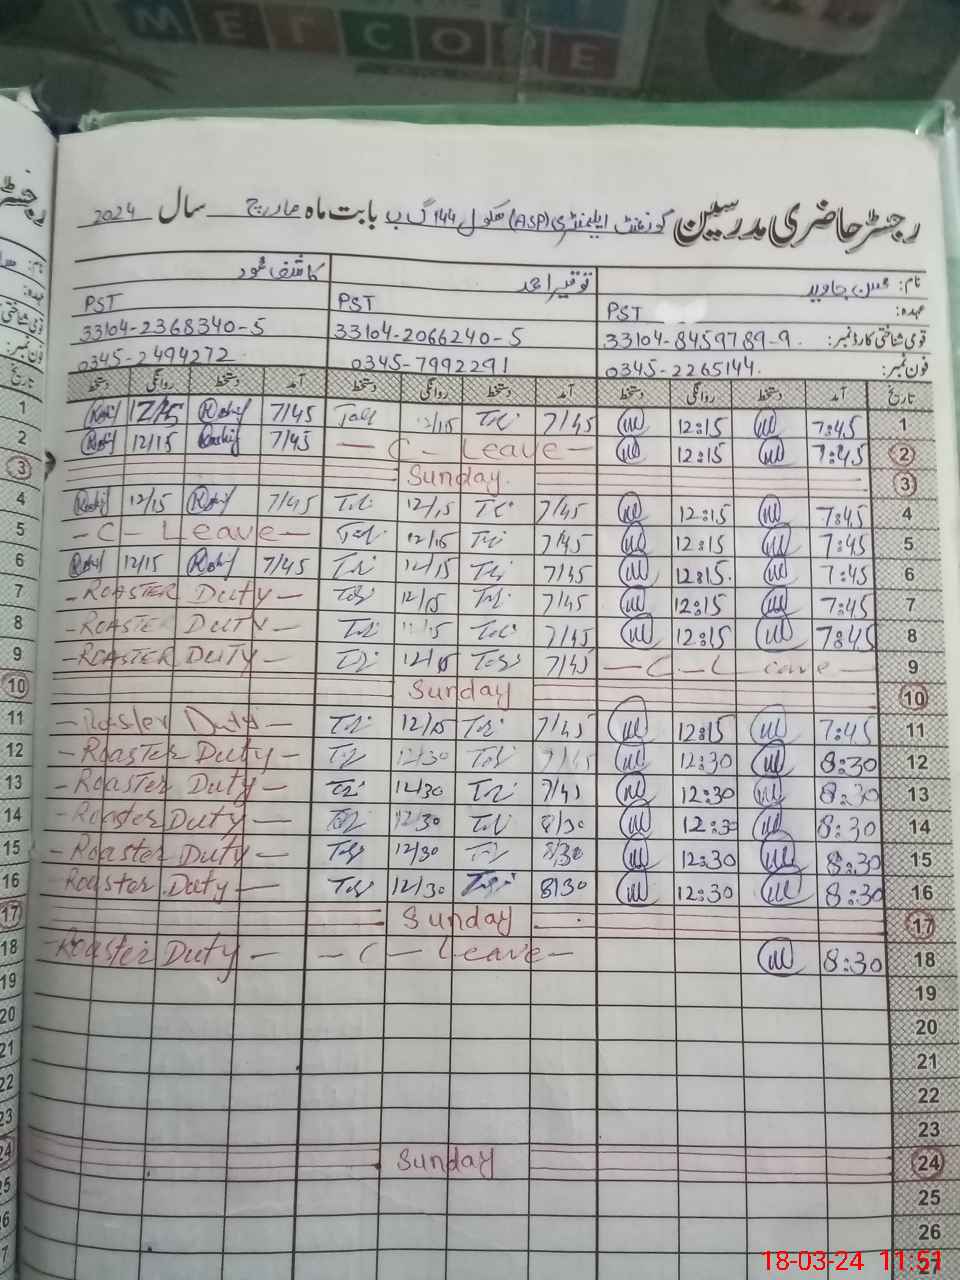 MELCOPE
رجسٹر حاضری مدرسین گورنمنٹ ایلیمنٹری (ASP) سکول 144 گ ب بابت ماہ مارچ سال 2024
نام: محسن جاوید توقیر احمد کاشف محمود
عہدہ: PST PST PST
قومی شناختی کارڈ نمبر: 33104-8459789-9. 33104-2066240-5 33104-2368340-5
فون نمبر: 0345-2265144. 0345-7992291 0345-2494272
تاریخ آمد دستخط روانگی دستخط آمد دستخط روانگی دستخط آمد دستخط روانگی دستخط
1 7:45 12:15 7/45 12/15 7/45 12/15 1
2 7:45 12:15 — C - Leave — 7/45 12/15 2
3 Sunday. 3
4 7:45 12:15 7/45 12/15 7/45 12/15 4
5 7:45 12:15 7/45 12/15 - C - Leave — 5
6 7:45 12:15. 7/45 12/15 7/45 12/15 6
7 7:45 12:15 7/45 12/15 - ROASTER Duty — 7
8 7:45 12:15 7/45 - ROASTE DUTY — 8
9 — C - Leave — 7/45 12/15 - ROASTER DUTY — 9
10 Sunday 10
11 7:45 12:15 7/45 12/15 - Roaster Duty - 11
12 8:30 12:30 7/45 12/30 - Roaster Duty - 12
13 8:30 12:30 7/45 12/30 - Roaster Duty - 13
14 8:30 12:30 8/30 12/30 - Roaster Duty - 14
15 8:30 12:30 8/30 12/30 - Roaster Duty - 15
16 8:30 12:30 8/30 12/30 Roaster Duty — 16
17 Sunday 17
18 8:30 - C - Leave - - Roaster Duty - 18
19 19
20 20
21 21
22 22
23 23
24 Sunday 24
25 25
26
27
18-03-24 11:51